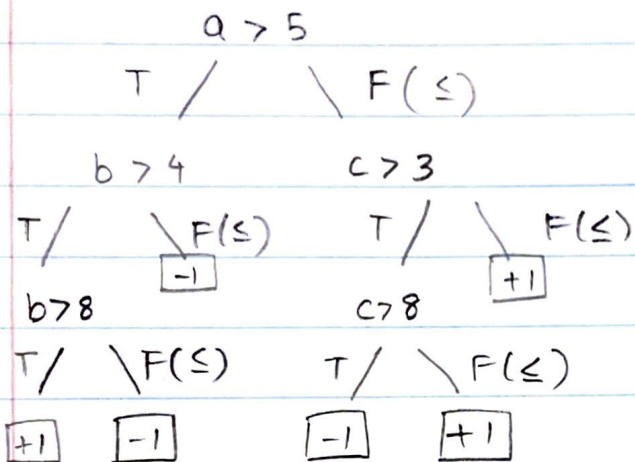 a > 5
T F(≤)
b > 4 c > 3
T F(≤) T F(≤)
-1 +1
b>8 c>8
T F(≤) T F(≤)
+1 -1 -1 +1